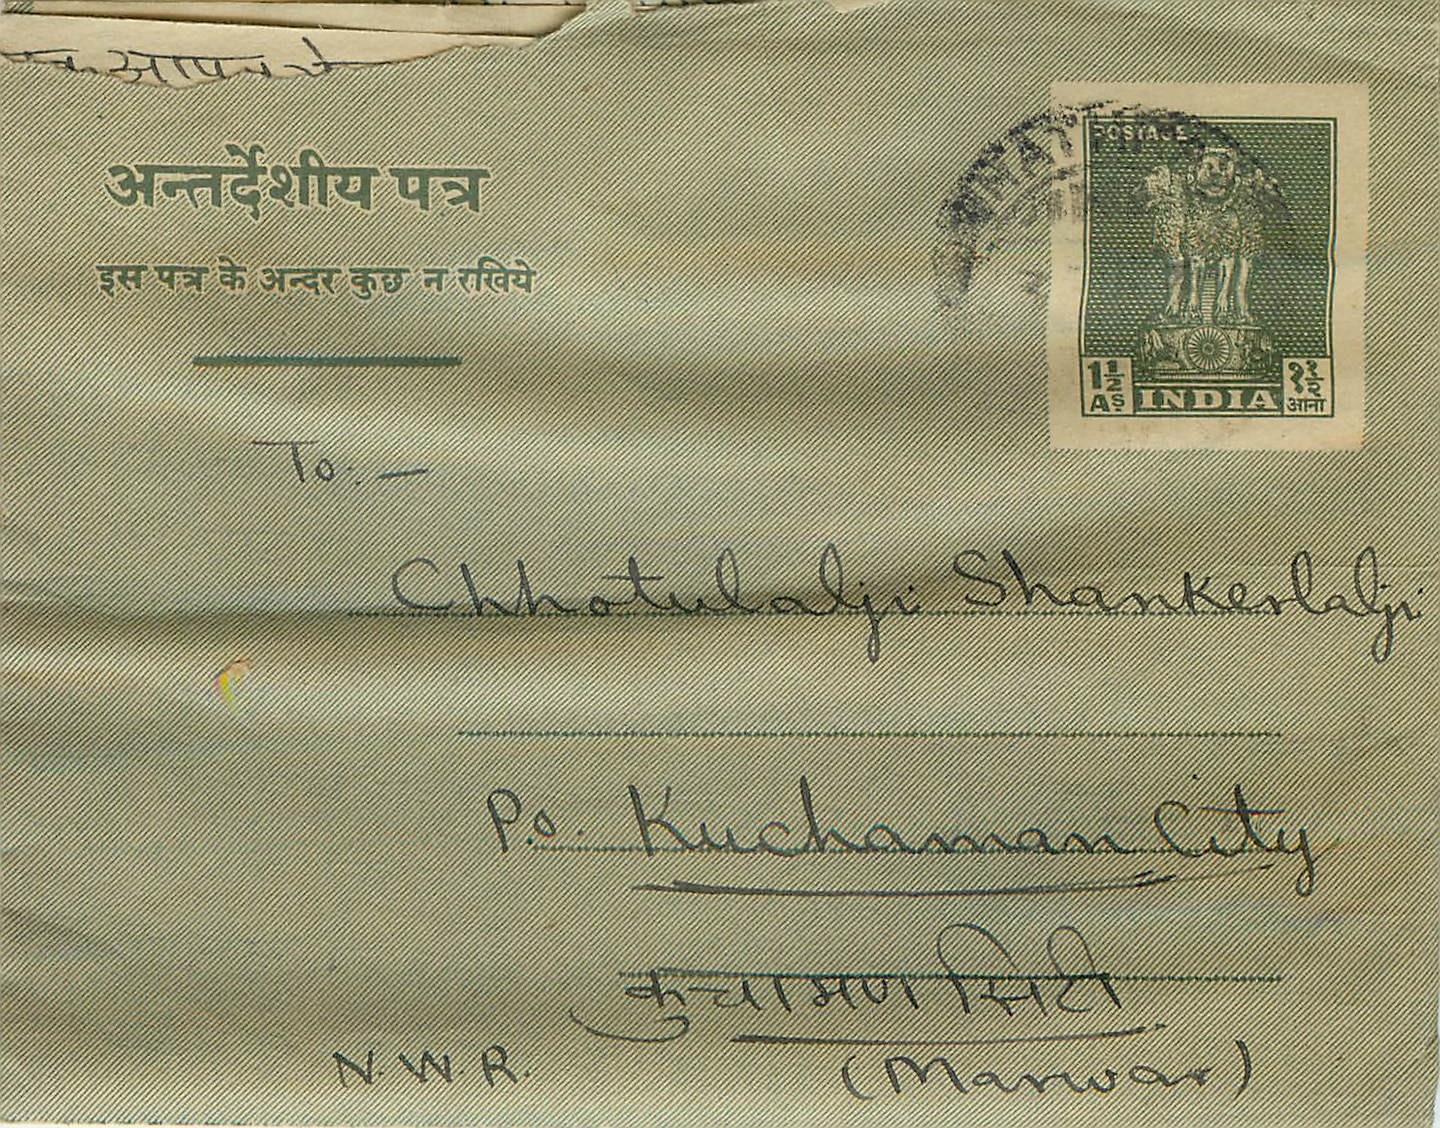 अन्तर्देशीय पत्र
इस पत्र के अन्दर कुछ न रखिये
POSTAGE
1½ As
INDIA
१½ आना
To:—
Chhotulalji Shankerlalji
P.o. Kuchaman City
कुचामण सिटी
N.W.R. (Marwar)